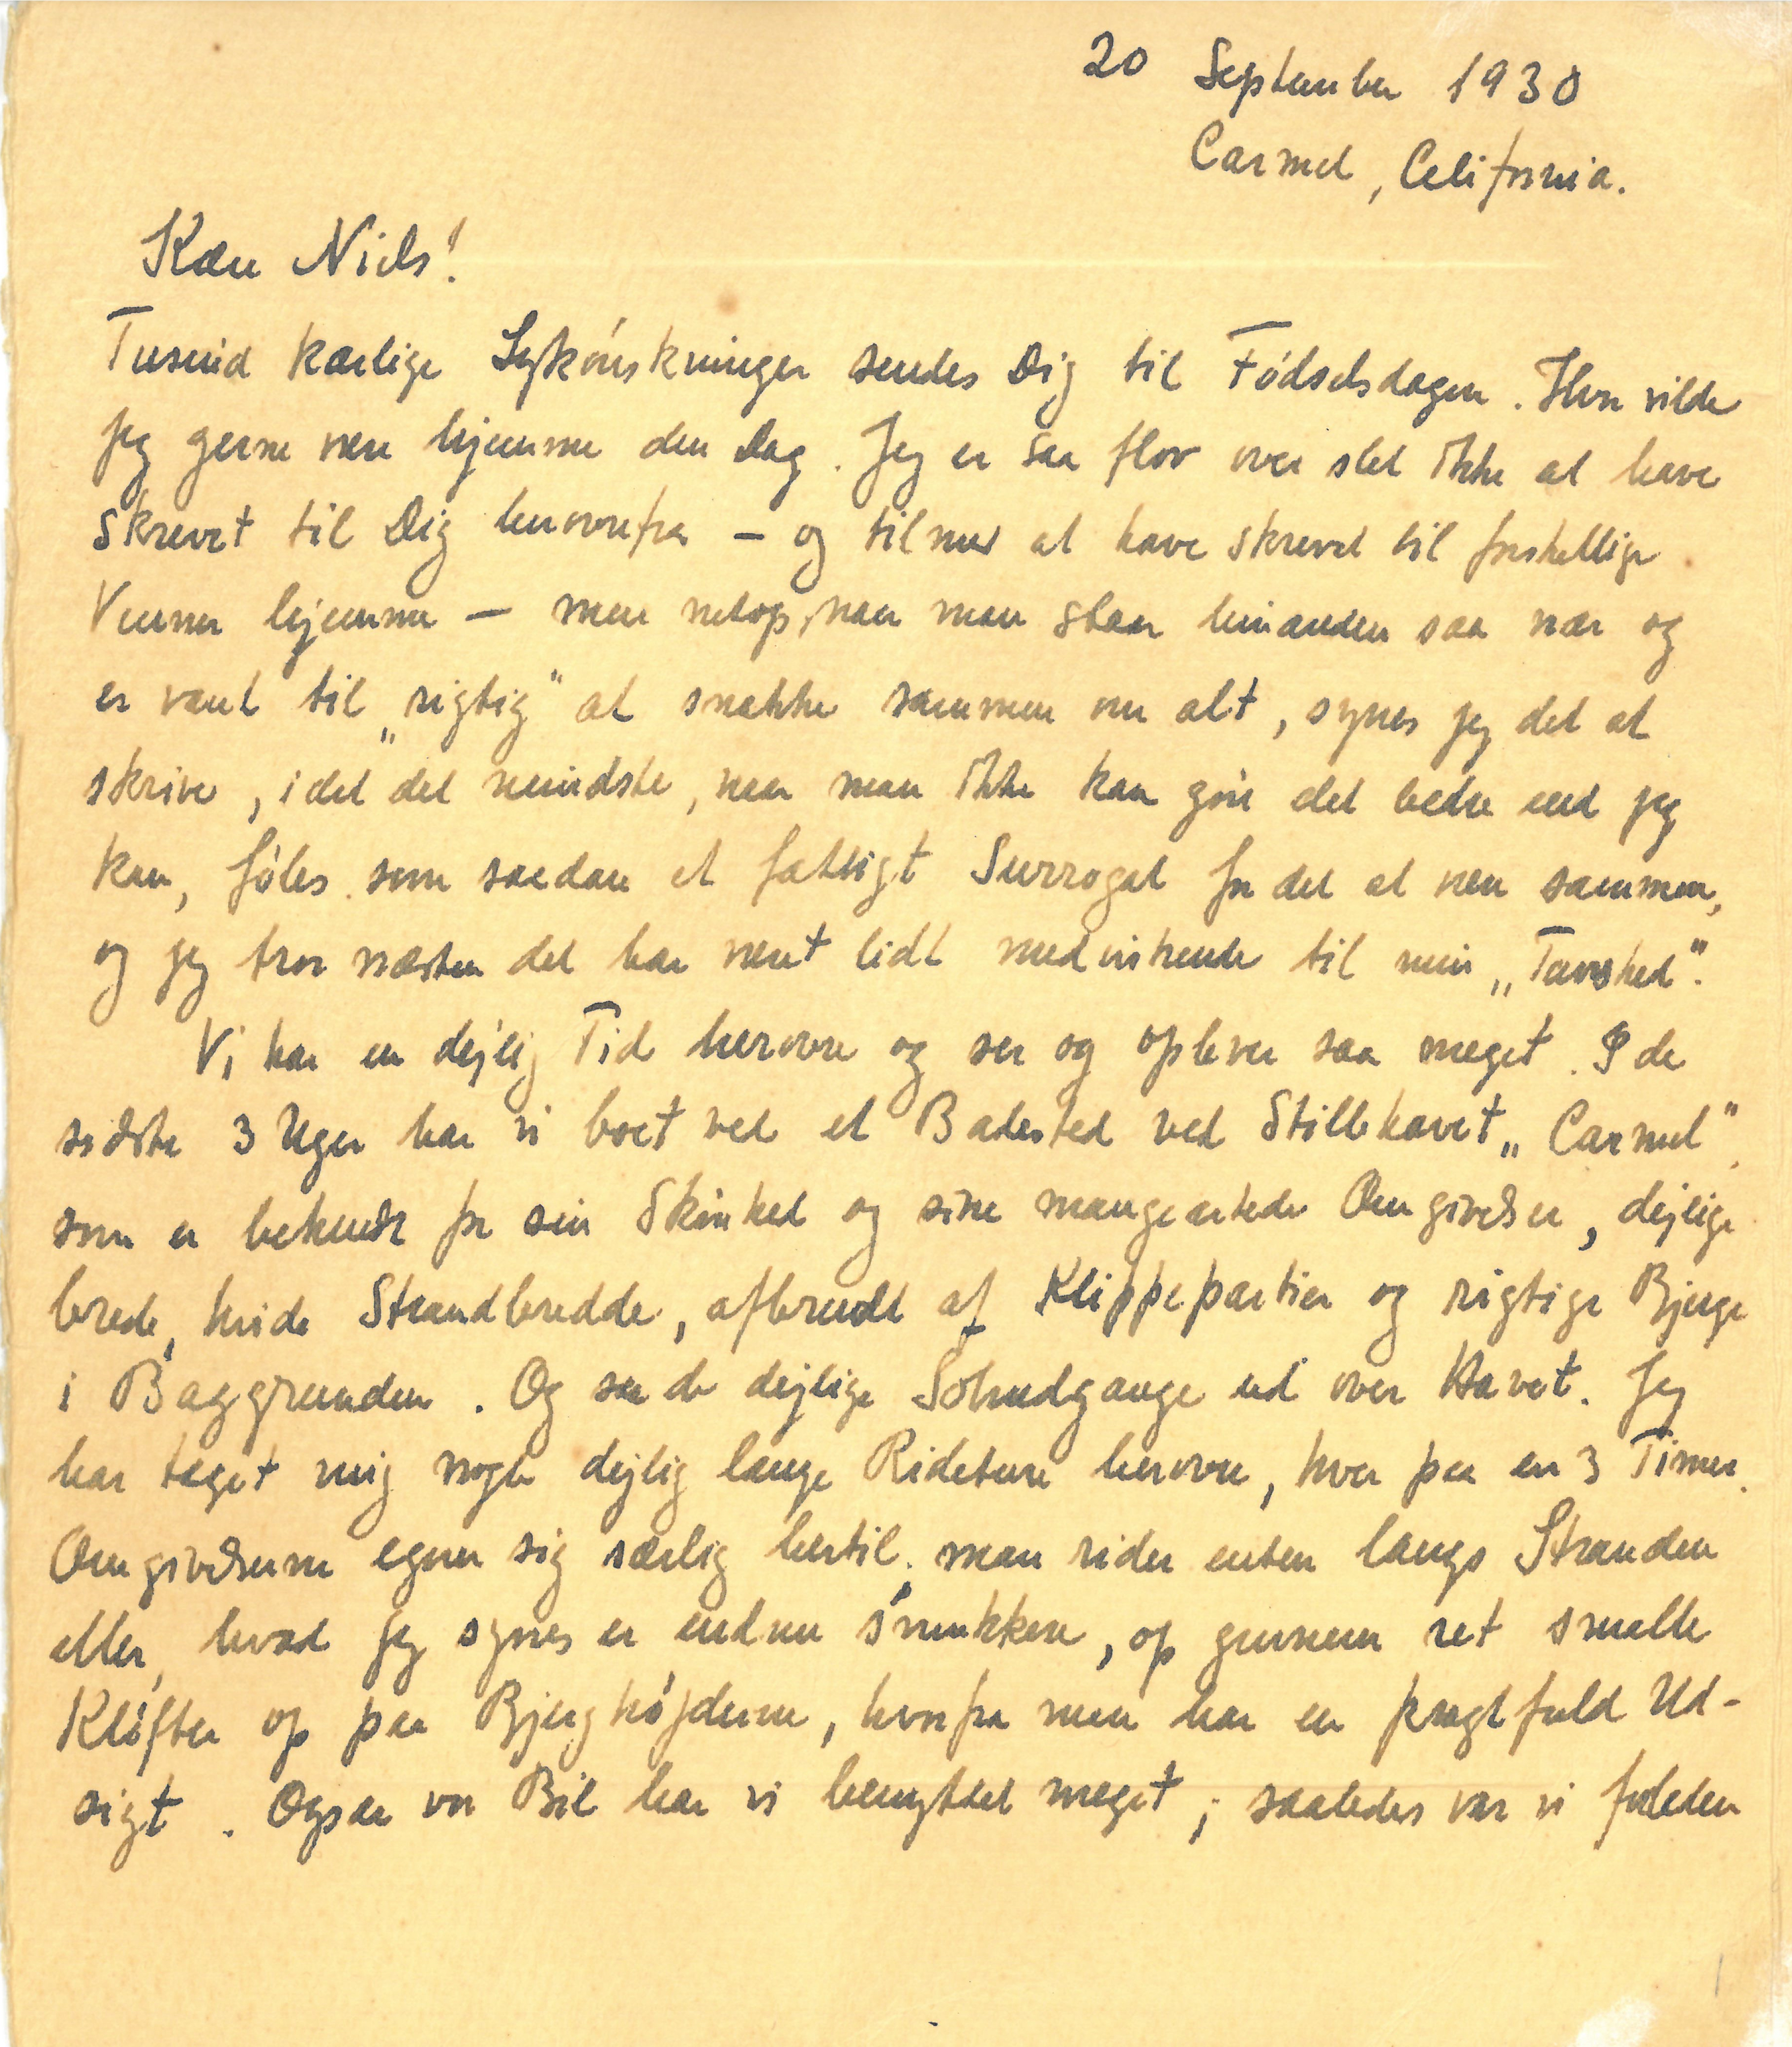 20 September 1930
Carmel, Celifornia.
Kære Niels!
Tusind kærlige Lykønskninger sendes Dig til Fødselsdagen. Hvor vilde
jeg gerne være hjemme den Dag. Jeg er saa flov over slet ikke at have
skrevet til Dig herovrefra – og tilmed at have skrevet til forskellige
Venner hjemme – men netop, naar man staar hinanden saa nær og
er vant til „rigtig" at snakke sammen om alt, synes jeg det at
skrive, i det det mindste, naar man ikke kan gøre det bedre end jeg
kan, føles som saadan et fattigt Surrogat for det at være sammen,
og jeg tror næsten det har været lidt medvirkende til min „Tavshed".
Vi har en dejlig Tid herovre og ser og oplever saa meget. I de
sidste 3 Uger har vi boet ved et Badested ved Stillehavet „Carmel",
som er bekendt for sin Skønhed og sine mangeartede Omgivelser, dejlige
brede, hvide Strandbredde, afbrudt af Klippepartier og rigtige Bjerge
i Baggrunden. Og saa de dejlige Solnedgange ud over Havet. Jeg
har taget mig nogle dejlig lange Rideture herovre, hver paa en 3 Timer.
Omgivelserne egner sig særlig hertil; man rider enten langs Stranden
eller, hvad jeg synes er endnu smukkere, op gennem ret smalle
Kløfter op paa Bjerghøjderne, hvorfra man har en pragtfuld Ud-
sigt. Ogsaa vor Bil har vi benyttet meget; saaledes var vi forleden